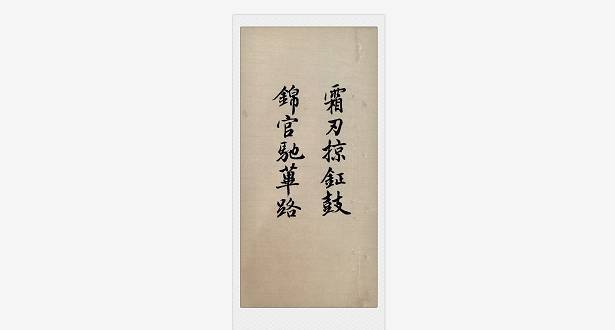 霜刃掠鉦鼓
錦官馳蓽路